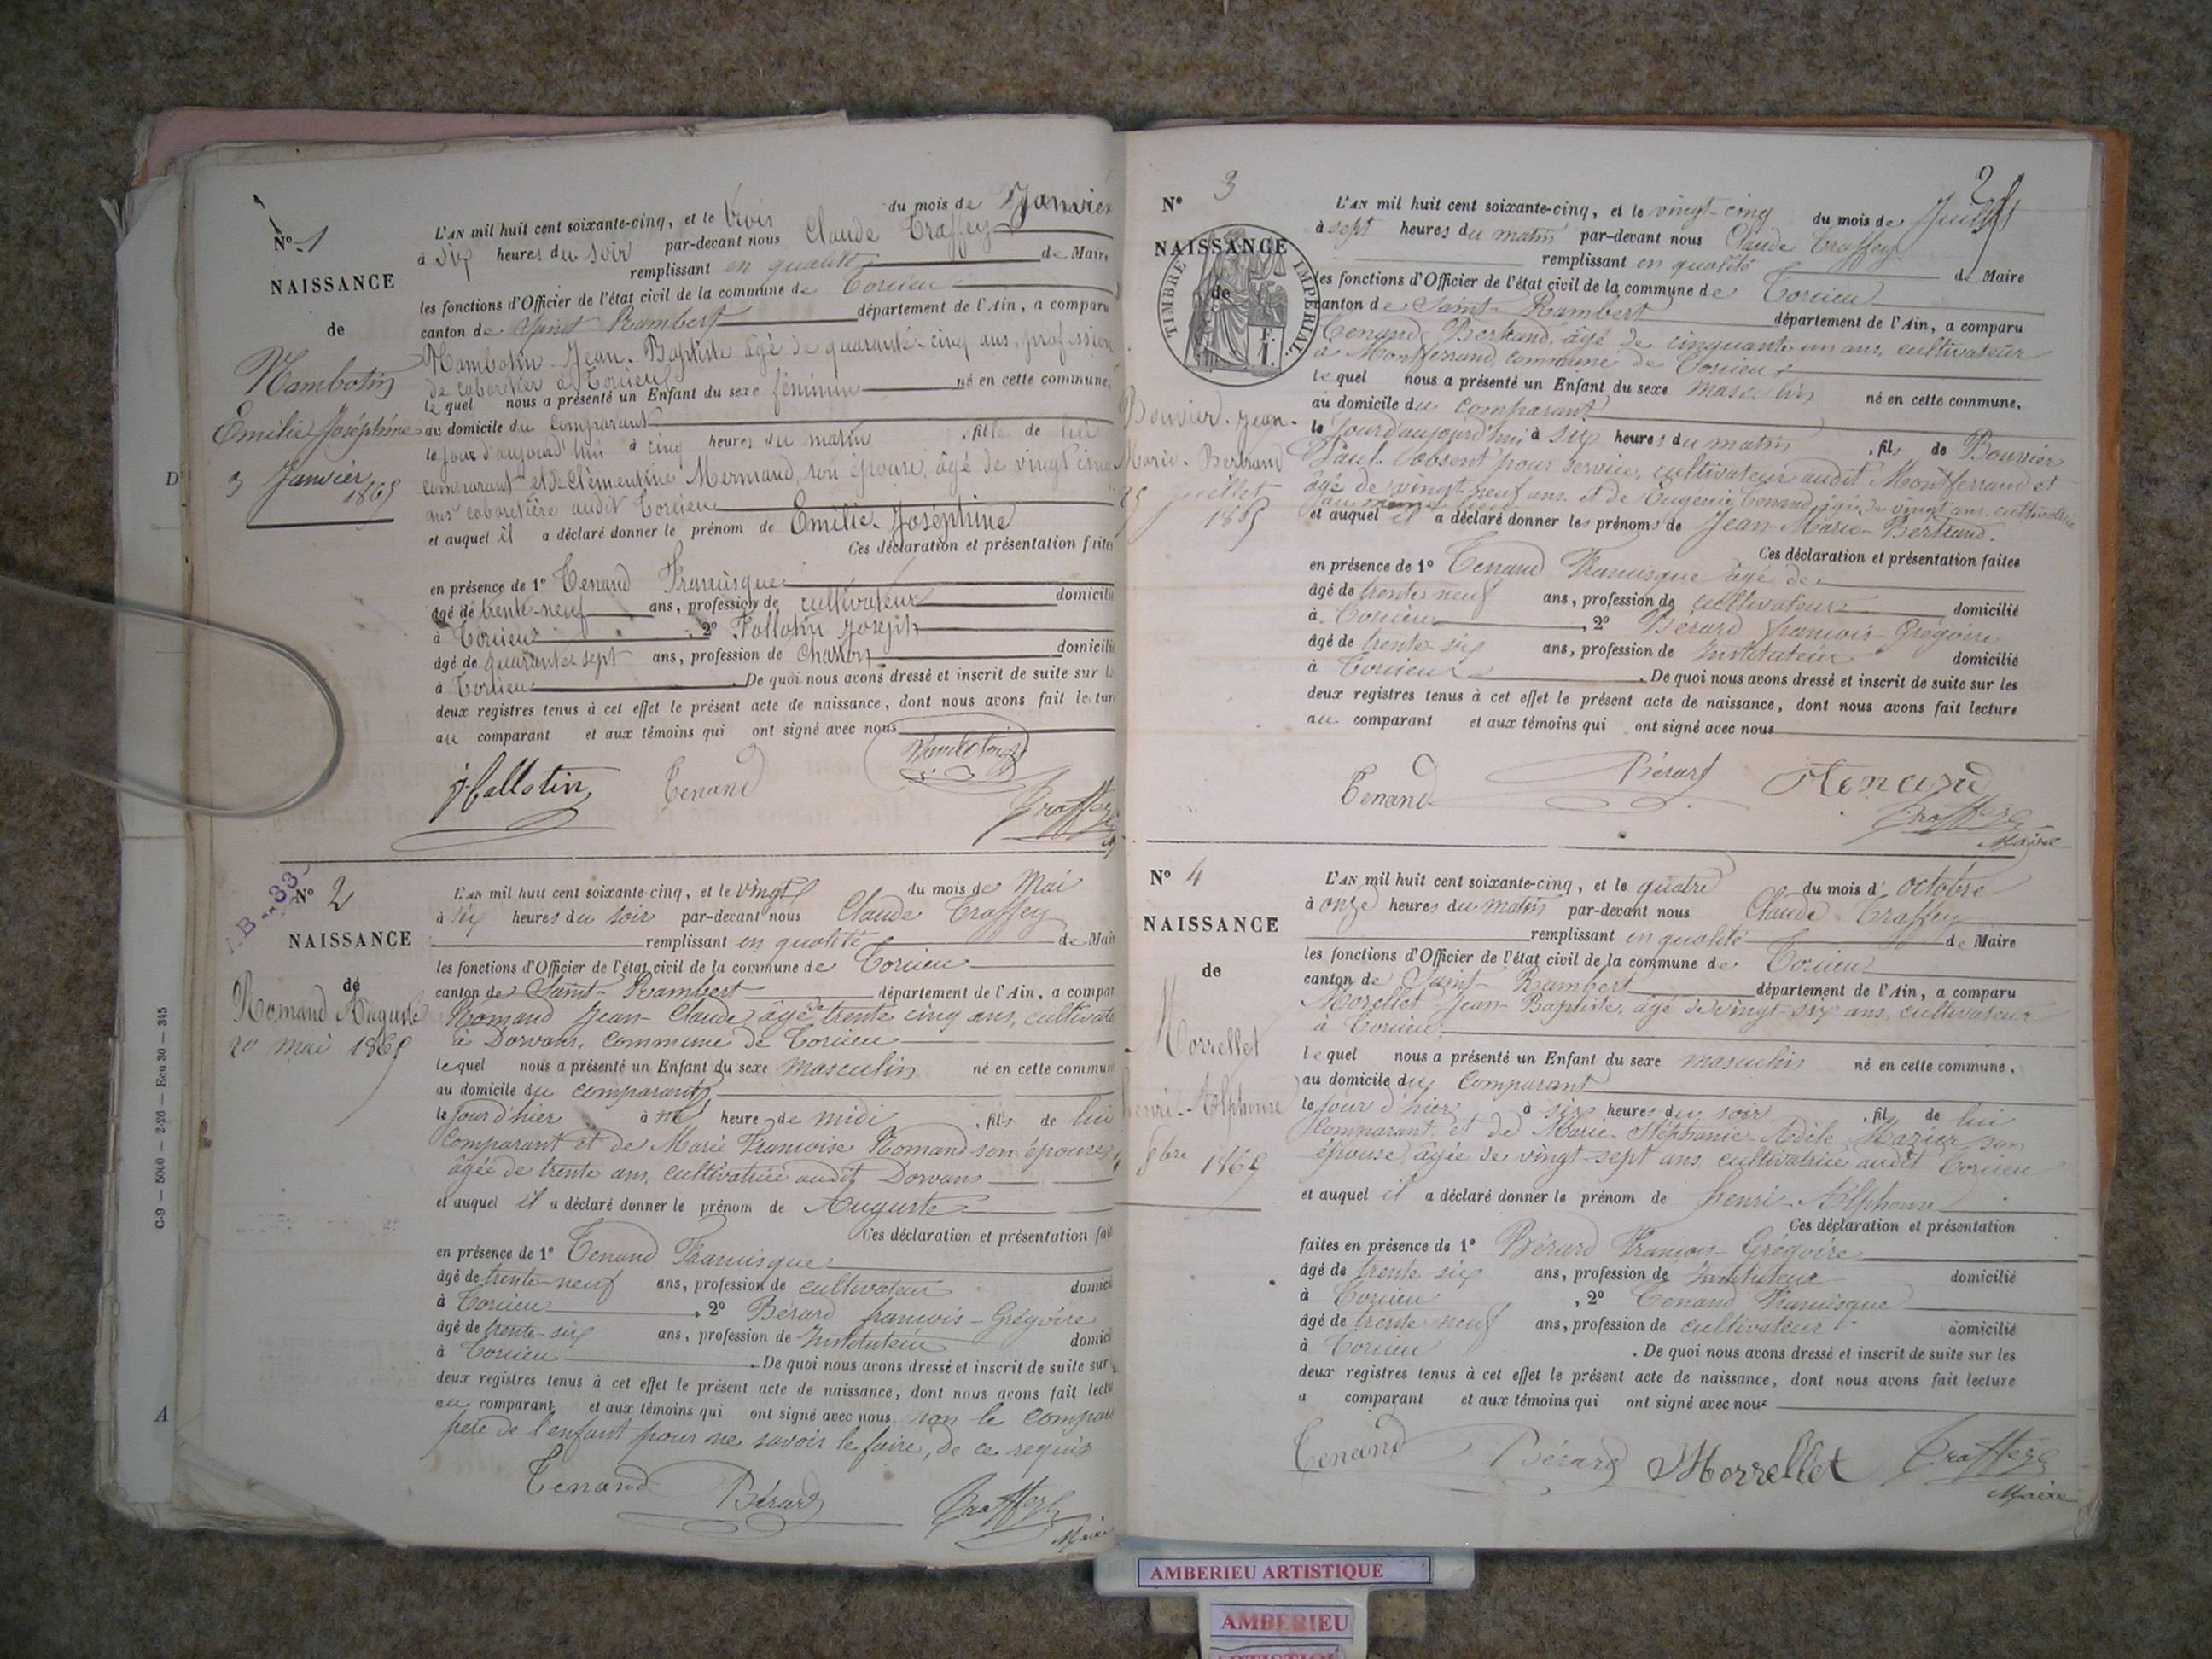 N° 1
NAISSANCE
de
Nambotin
Emilie Joséphine
3 Janvier
1865
L'AN mil huit cent soixante-cinq, et le trois du mois de Janvier
à six heures du soir par-devant nous Claude Traffey
remplissant en qualité de Maire
les fonctions d'Officier de l'état civil de la commune de Torcieu
canton de Saint Rambert département de l'Ain, a comparu
Nambotin Jean-Baptiste âgé de quarante-cinq ans, profession
de cabaretier à Torcieu
lequel nous a présenté un Enfant du sexe féminin né en cette commune,
au domicile du comparant
le jour d'aujourd'hui à cinq heures du matin, fille de lui
comparant et de Clémentine Mermand, son épouse, âgé de vingt cinq
ans cabaretière audit Torcieu
et auquel il a déclaré donner le prénom de Emilie-Joséphine
Ces déclaration et présentation faites
en présence de 1° Tenand Francisque
âgé de trente-neuf ans, profession de cultivateur domicilié
à Torcieu, 2° Follotin Joseph
âgé de quarante-sept ans, profession de charron domicilié
à Torcieu. De quoi nous avons dressé et inscrit de suite sur le
deux registres tenus à cet effet le présent acte de naissance, dont nous avons fait lecture
au comparant et aux témoins qui ont signé avec nous
Tenand
N° 2
NAISSANCE
de
Romand Auguste
20 mai 1865
L'AN mil huit cent soixante-cinq, et le vingt du mois de Mai
à six heures du soir par-devant nous Claude Traffey
remplissant en qualité de Mair
les fonctions d'Officier de l'état civil de la commune de Torcieu
canton de Saint-Rambert département de l'Ain, a compar
Romand Jean-Claude, âgé de trente cinq ans, cultivate
à Dorvans, commune de Torcieu
lequel nous a présenté un Enfant du sexe masculin né en cette commun
au domicile du comparant
le jour d'hier à heure de midi, fils de lui
comparant et de Marie Françoise Romand son épouse,
âgée de trente ans, cultivatrice audit Dorvans
et auquel il a déclaré donner le prénom de Auguste
Ces déclaration et présentation fait
en présence de 1° Tenand Francisque
âgé de trente-neuf ans, profession de cultivateur domici
à Torcieu, 2° Bérard françois-Grégoire
âgé de trente-six ans, profession de Instituteur domici
à Torcieu. De quoi nous avons dressé et inscrit de suite sur
deux registres tenus à cet effet le présent acte de naissance, dont nous avons fait lectu
au comparant et aux témoins qui ont signé avec nous non le compar
père de l'enfant pour ne savoir le faire, de ce requis
Tenand Bérard Traffey
Maire
2
N° 3
NAISSANCE
de
TIMBRE IMPÉRIAL
Bouvier Jean-
Marie-Bertrand
25 Juillet
1865
L'AN mil huit cent soixante-cinq, et le vingt-cinq du mois de Juillet
à sept heures du matin par-devant nous Claude Traffey
remplissant en qualité de Maire
les fonctions d'Officier de l'état civil de la commune de Torcieu
canton de Saint-Rambert département de l'Ain, a comparu
Tenand Bertrand, âgé de cinquante un ans, cultivateur
à Montferrand, commune de Torcieu
lequel nous a présenté un Enfant du sexe masculin né en cette commune,
au domicile du comparant
le jour d'aujourd'hui à six heures du matin, fils de Bouvier
Paul, absent pour service, cultivateur audit Montferrand et
âgé de vingt-neuf ans et de Eugénie Tenand, âgée de vingt ans cultivatrice
et auquel il a déclaré donner les prénoms de Jean-Marie-Bertrand.
Ces déclaration et présentation faites
en présence de 1° Tenand Francisque âgé de
âgé de trente neuf ans, profession de cultivateur domicilié
à Torcieu, 2° Bérard françois-Grégoire
âgé de trente-six ans, profession de Instituteur domicilié
à Torcieu. De quoi nous avons dressé et inscrit de suite sur les
deux registres tenus à cet effet le présent acte de naissance, dont nous avons fait lecture
au comparant et aux témoins qui ont signé avec nous
Tenand Bérard Tenand
Traffey
Maire
N° 4
NAISSANCE
de
Morrellet
Henri-Alphonse
8bre 1865
L'AN mil huit cent soixante-cinq, et le quatre du mois d' octobre
à onze heures du matin par-devant nous Claude Traffey
remplissant en qualité de Maire
les fonctions d'Officier de l'état civil de la commune de Torcieu
canton de Saint-Rambert département de l'Ain, a comparu
Morellet Jean-Baptiste, âgé de vingt-six ans, cultivateur
à Torcieu
lequel nous a présenté un Enfant du sexe masculin né en cette commune,
au domicile du comparant
le jour d'hier à six heures du soir, fils de lui
comparant et de Marie-Stéphanie-Adèle Mazier son
épouse, âgée de vingt-sept ans, cultivatrice audit Torcieu
et auquel il a déclaré donner le prénom de henri-Alphonse
Ces déclaration et présentation
faites en présence de 1° Bérard François-Grégoire
âgé de trente six ans, profession de Instituteur domicilié
à Torcieu, 2° Tenand Francisque
âgé de trente neuf ans, profession de cultivateur domicilié
à Torcieu. De quoi nous avons dressé et inscrit de suite sur les
deux registres tenus à cet effet le présent acte de naissance, dont nous avons fait lecture
a comparant et aux témoins qui ont signé avec nous
Tenand Bérard Morrellet Traffey
Maire
AMBERIEU ARTISTIQUE
AMBERIEU
ARTISTIQUE